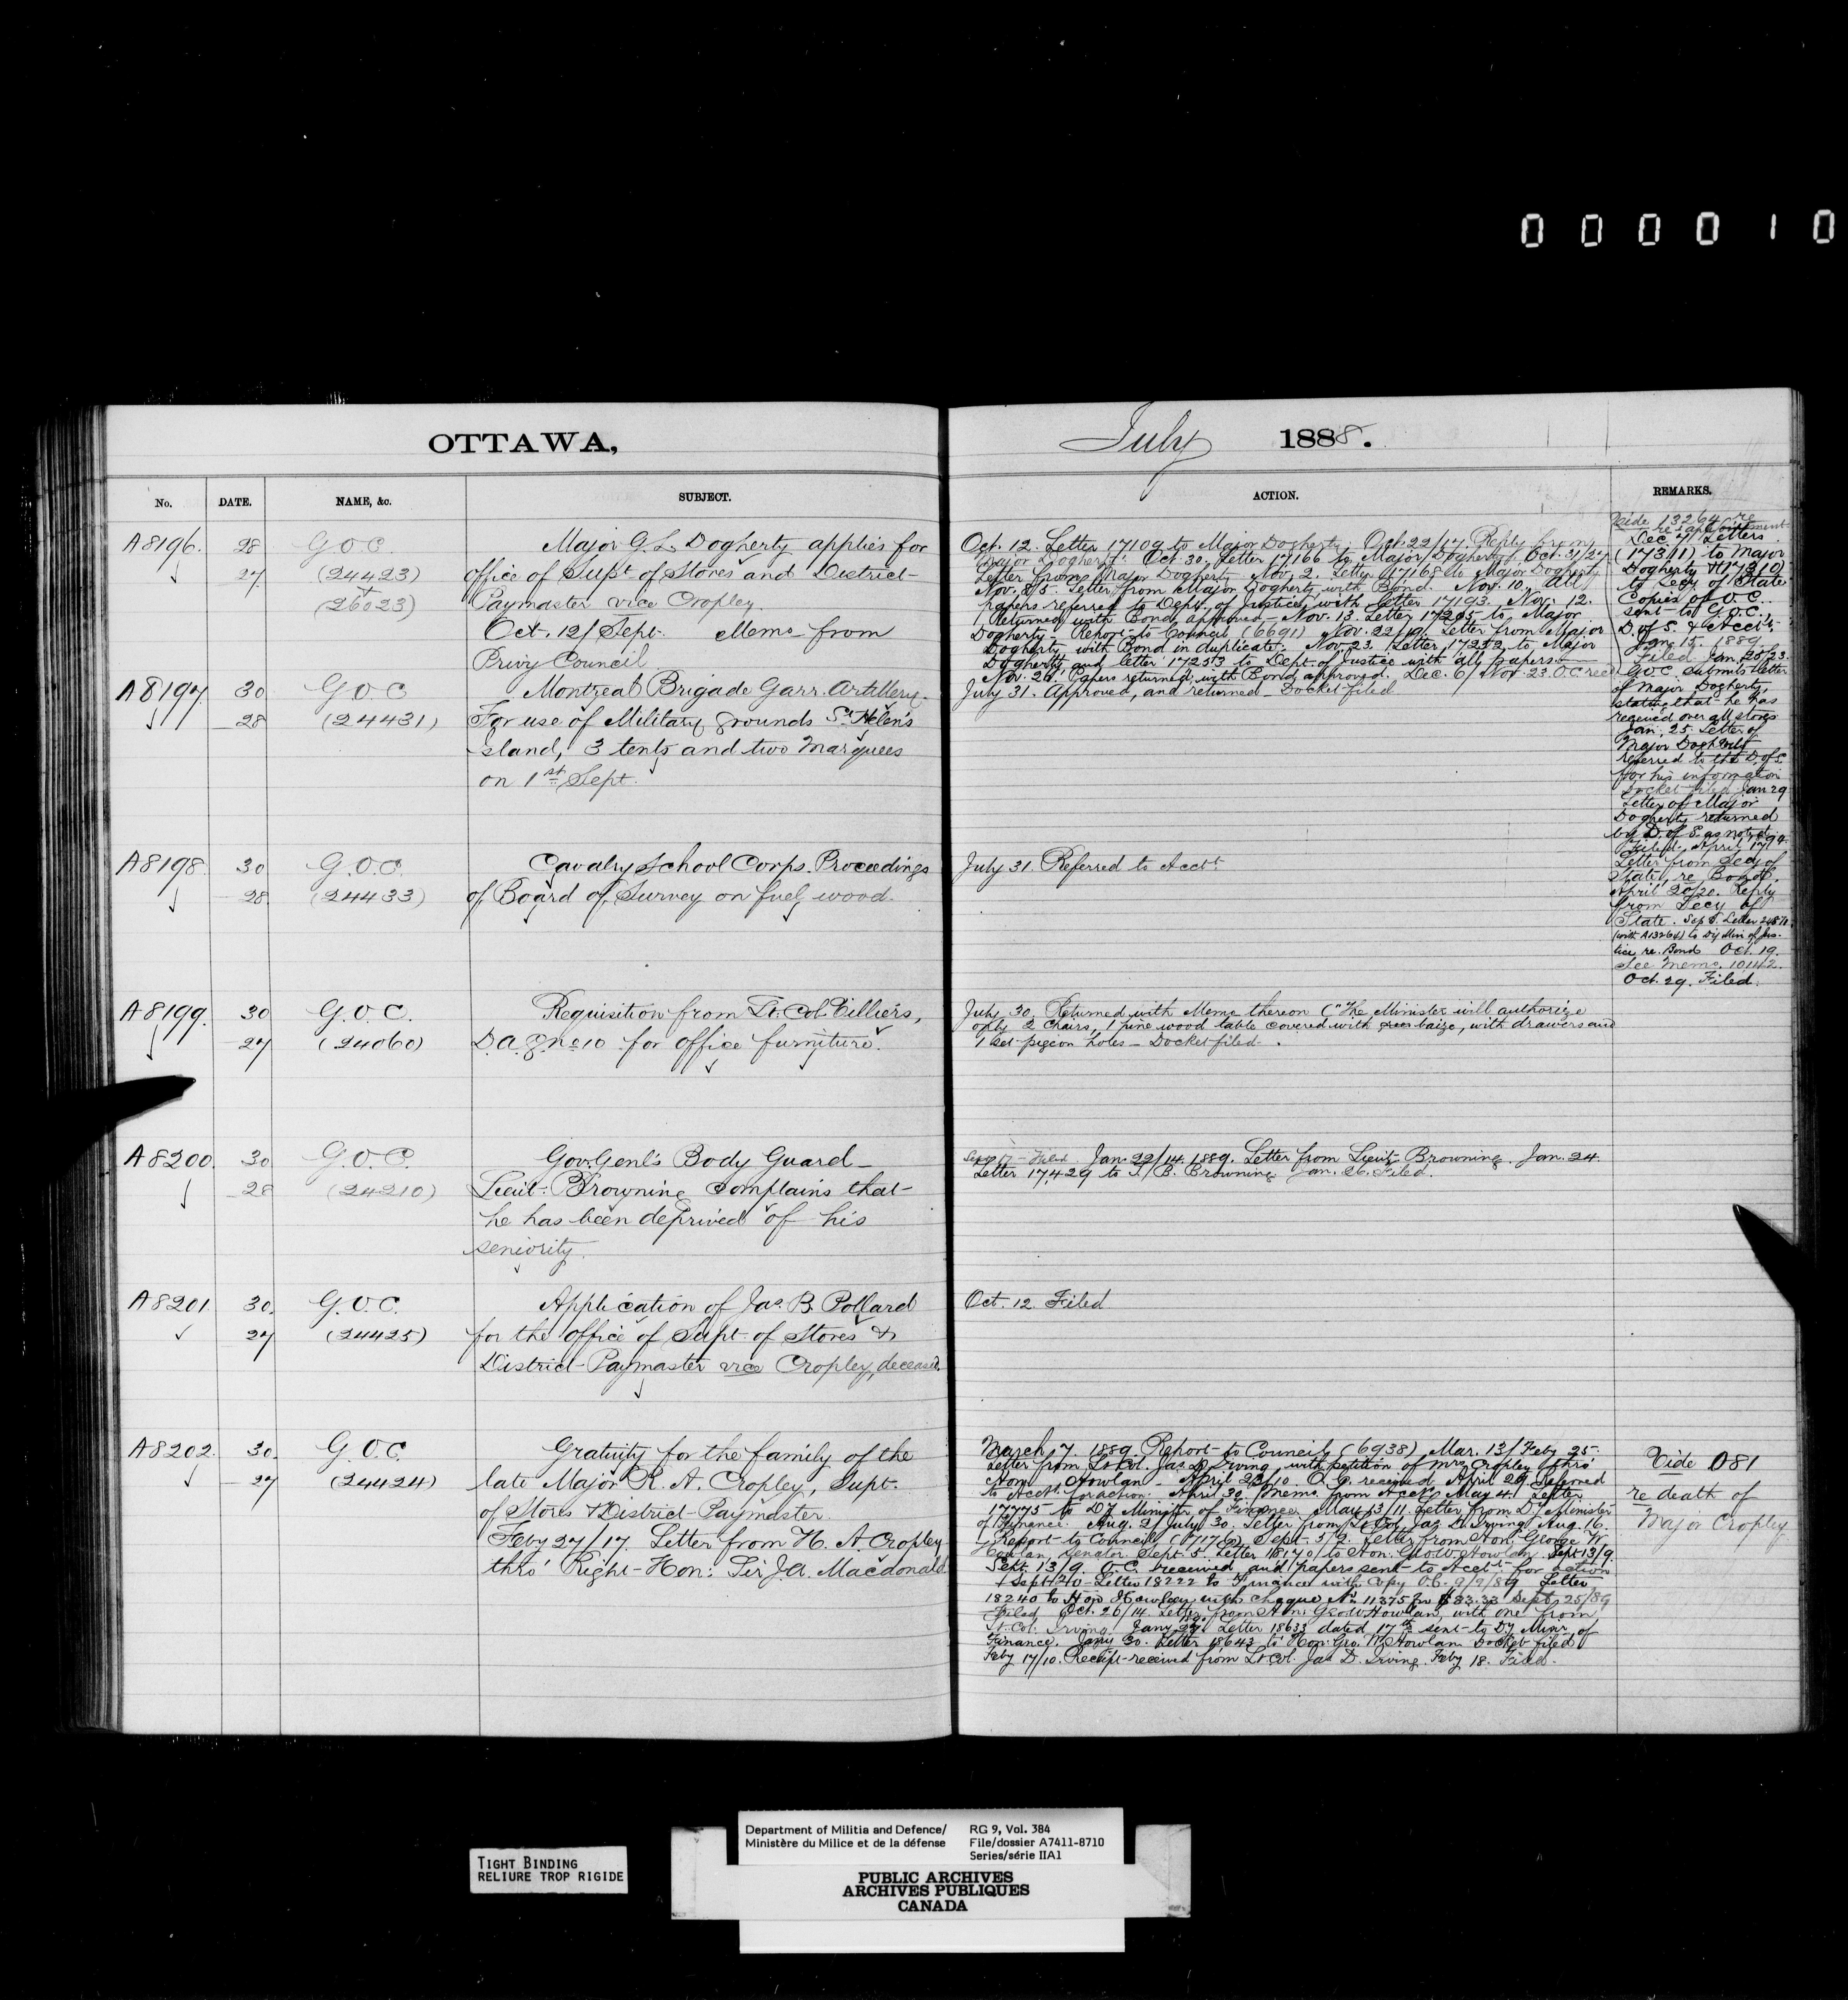 000010
OTTAWA,
July 1888.
No. DATE. NAME, &c. SUBJECT.
ACTION. REMARKS.
A8196. 28 G.O.C. Major G. L. Dogherty applies for
27 (24423) office of Supt of Stores and District
(26023) Paymaster vice Cropley.
Oct. 12/Sept. Memo from
Privy Council
Oct. 12. Letter 17109 to Major Dogherty. Oct 22/17. Reply from
Major Dogherty. Oct 30. Letter 17166 to Major Dogherty. Oct. 31/27
Letter from Major Dogherty Nov. 2. Letter 17168 to Major Dogherty
Nov. 8/5. Letter from Major Dogherty with Bond. Nov. 10. All
papers referred to Dept. of Justice, with letter 17193. Nov. 12.
Returned with Bond, approved – Nov. 13. Letter 17205 to Major
Dogherty – Report to Council (6691) Nov. 22/19. Letter from Major
Dogherty with Bond in duplicate. Nov. 23. Letter 17252 to Major
Dogherty and letter 17253 to Dept. of Justice with all papers
Nov. 26. Papers returned with Bond approved. Dec. 6/Nov. 23. O.C. recd
Vide 13264 re
re appointment
Dec. 7. Letters
(17311) to Major
Dogherty & (17310)
to Secy of State
Copies of O.C.
sent to G.O.C.,
D. of S. & Acct.
Jan. 15. 1889
Filed Jan. 25/23.
G.O.C. submits letter
of Major Dogherty,
stating that he has
received over all stores
Jan. 25. Letter of
Major Dogherty
referred to the D. of S.
for his information
Docket filed Jan 29
Letter of Major
Dogherty returned
by D. of S. as noted
Filed. April 17/9.
Letter from Secy of
State, re Bond.
April 20/20. Reply
from Secy of
State. Sep 5. Letter
(with A13264) to Dy Min. of Jus-
tice re. Bond Oct. 19.
See Memo. 10142.
Oct. 29. Filed.
A8197 30 G.O.C. Montreal Brigade Garr. Artillery.
28 (24431) For use of Military grounds St. Helen's
Island, 3 tents and two Marquees
on 1st Sept.
July 31. Approved, and returned – Docket filed
A8198 30 G.O.C. Cavalry School Corps. Proceedings
28 (24433) of Board of Survey on fuel wood.
July 31. Referred to Acct.
A8199. 30 G.O.C. Requisition from Lt. Col. Villiers,
27 (24060) D.A.G. No 10 for office furniture.
July 30. Returned with Memo thereon ("The Minister will authorize
only 2 chairs, 1 pine wood table covered with green baize, with drawers and
1 set pigeon holes – Docket filed.
A8200. 30 G.O.C. Gov. Genl's Body Guard –
28 (24210) Lieut: Browning complains that
he has been deprived of his
seniority.
Sep 17 – Filed. Jan. 22/14. 1889. Letter from Lieut Browning. Jan. 24.
Letter 17,429 to J. B. Browning Jan. 26. Filed.
A8201. 30. G.O.C. Application of Jas. B. Pollard
27 (24425) for the office of Supt. of Stores &
District Paymaster vice Cropley, deceased.
Oct. 12. Filed
A8202. 30. G.O.C. Gratuity for the family of the
27 (24424) late Major R. A. Cropley, Supt.
of Stores & District Paymaster.
Feby 27/17. Letter from H. A. Cropley
thro' Right Hon: Sir J. A. Macdonald
March 7. 1889. Report to Council (6938) Mar. 13/Feby 25.
Letter from Lt. Col. Jas D. Irving, with petition of Mrs Cropley thro'
Hon Howlan – April 23/10. O.C. received April 29. Referred
to Acct. for action. April 30. Memo. from Acct. May 4. Letter
17775 to Dy. Minister of Finance. May 13/11. Letter from Dy. Minister
of Finance. Aug. 2/July 30. Letter from Lt Col Jas D. Irving. Aug. 16.
Report to Council Sept. 5/2. Letter from Hon. George W.
Howlan, Senator. Sept. 5. Letter 18170 to Hon. Geo. W. Howlan. Sept 13/9.
Sept. 13/9. O.C. received and papers sent to Acct. for action
Sept. 20 – Letter 18222 to Finance with copy O.C. 9/9/89 Letter
18240 to Hon Howlan with cheque No 11375 for $83.33 Sept 25/89
Filed Oct. 26/14. Letter from Hon. Geo W Howlan with one from
Lt. Col. Irving. Jany 27. Letter 18633 dated 17th sent to Dy Minr. of
Finance. Jany 30. Letter 18643 to Hon: Geo. W. Howlan Docket filed
Feby 17/10. Receipt received from Lt Col. Jas D. Irving. Feby 18. Filed.
Vide 081
re death of
Major Cropley
TIGHT BINDING
RELIURE TROP RIGIDE
Department of Militia and Defence/ RG 9, Vol. 384
Ministère du Milice et de la défense File/dossier A7411-8710
Series/série IIA1
PUBLIC ARCHIVES
ARCHIVES PUBLIQUES
CANADA